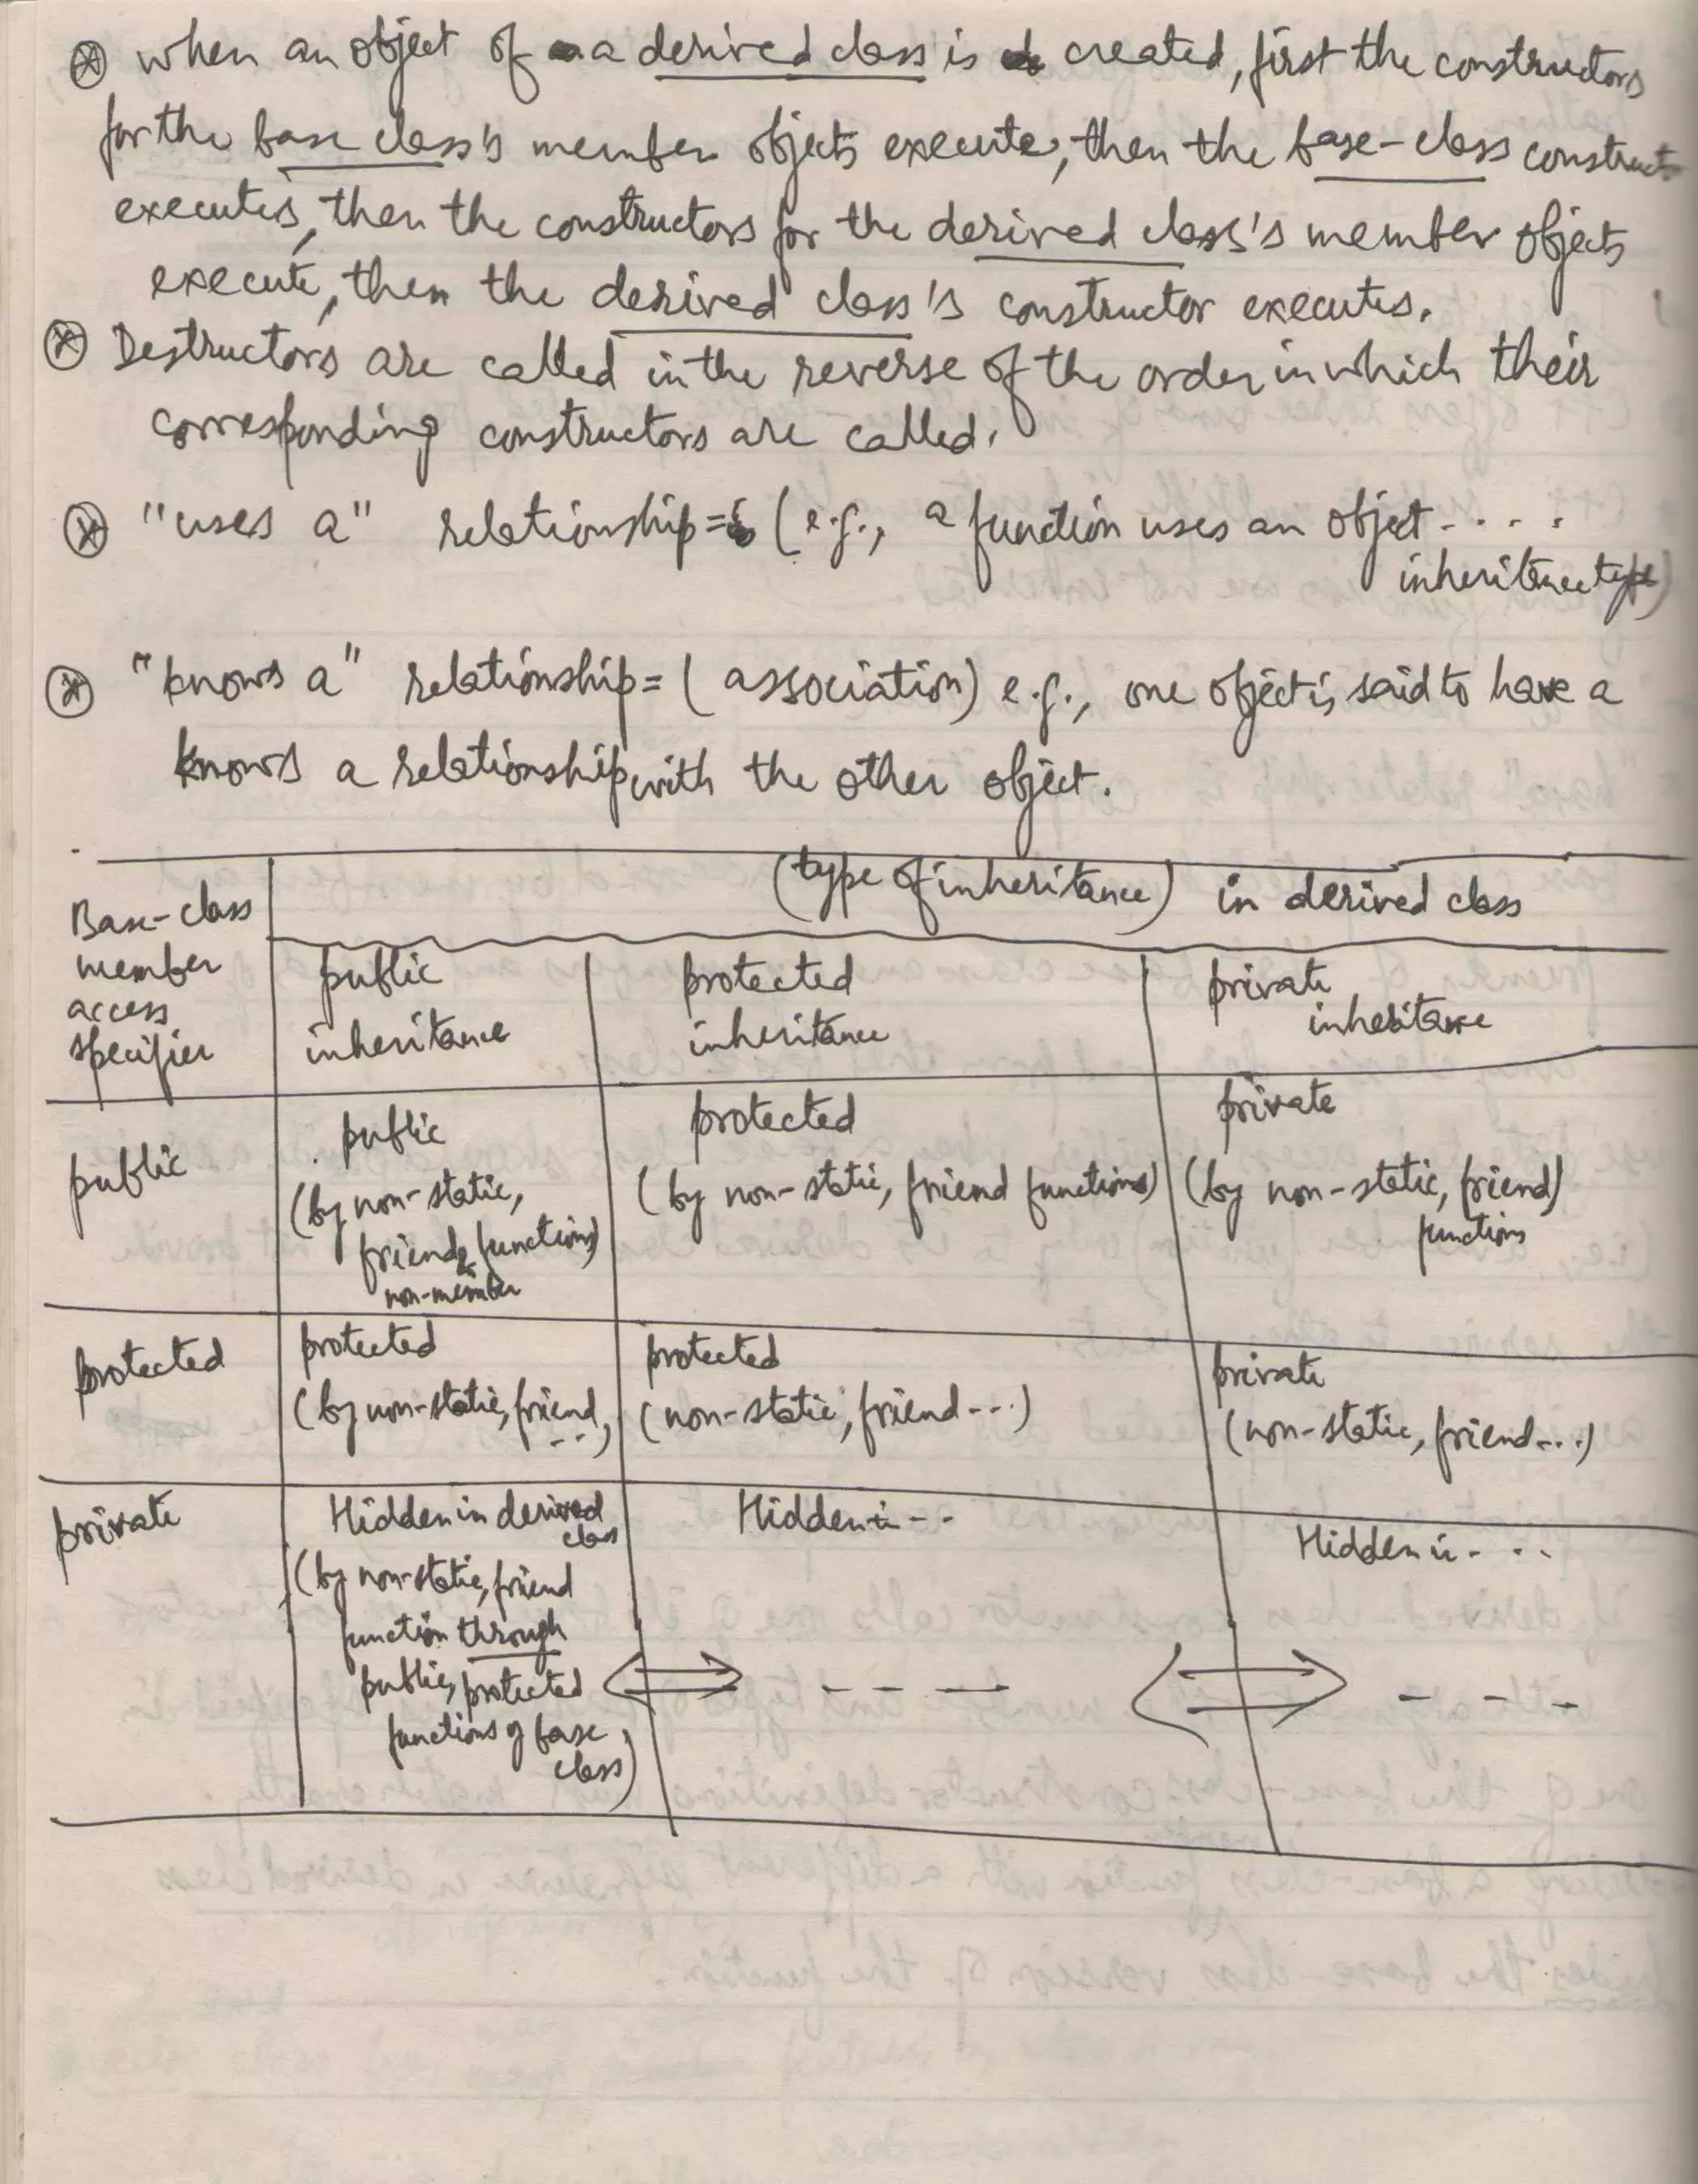 ⊛ when an object of a derived class is created, first the constructors
for the base class's member objects execute, then the base-class construct
executes, then the constructors for the derived class's member objects
execute, then the derived class's constructor executes.
⊛ Destructors are called in the reverse of the order in which their
corresponding constructors are called.
⊛ "uses a" relationship = (e.g., a function uses an object....
inheritance type)
⊛ "knows a" relationship = (association) e.g., one object is said to have a
knows a relationship with the other object.
Base-class
member
access
specifier
(type of inheritance) in derived class
public
inheritance
protected
inheritance
private
inheritance
public
public
(by non-static,
friend & functions)
non-member
protected
(by non-static, friend functions)
private
(by non-static, friend)
functions
protected
protected
(by non-static, friend,
...)
protected
(non-static, friend...)
private
(non-static, friend...)
private
Hidden in derived
class
(by non-static, friend
function through
public, protected
functions of base
class)
Hidden in --
⇔ - - - -
Hidden in - ..
⇔ - - -